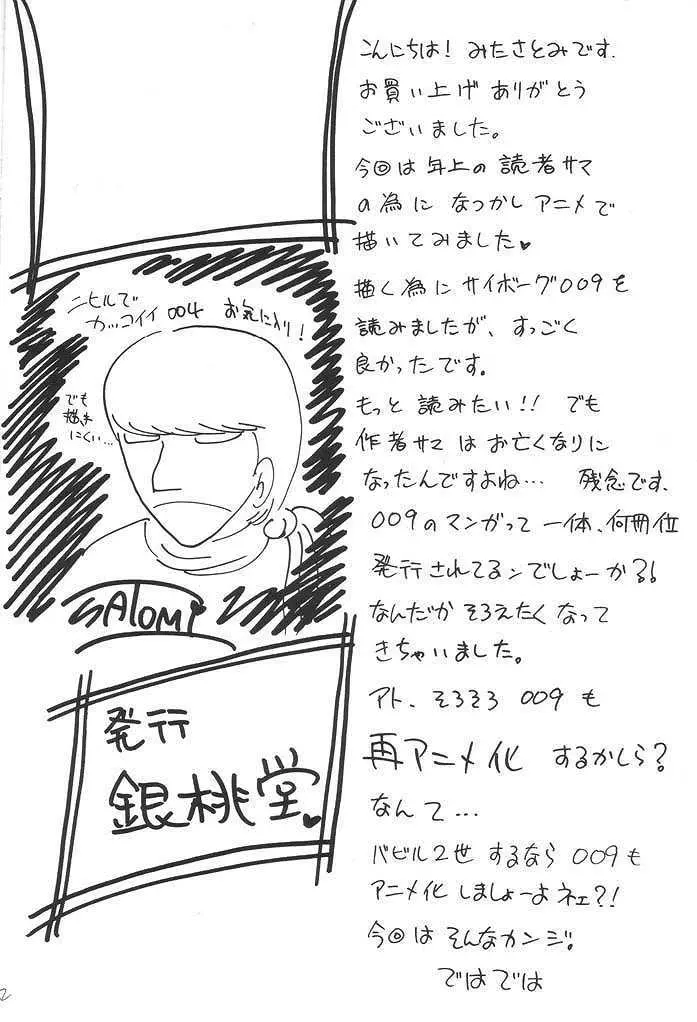 こんにちは! みたさとみです.
お買い上げ ありがとう
ございました。
今回は 年上の 読者サマ
の為に なつかし アニメで
描いてみました♥
描く為に サイボーグ009を
読みましたが、すっごく
良かったです。
もっと 読みたい!! でも
作者サマ は お亡くなりに
なったんですよね… 残念です.
009のマンガって 一体、何冊位
発行されてるンでしょーか?!
なんだか そろえたくなって
きちゃいました。
アト、そろそろ 009 も
再アニメ化 するかしら?
なんて…
バビル2世 するなら 009も
アニメ化 しましょーよネェ?!
今回は そんなカンジ。
ではでは
ニヒルで
カッコイイ 004 お気に入り!
でも
描き
にくい…
SAtOMi
発行
銀桃堂♥
2